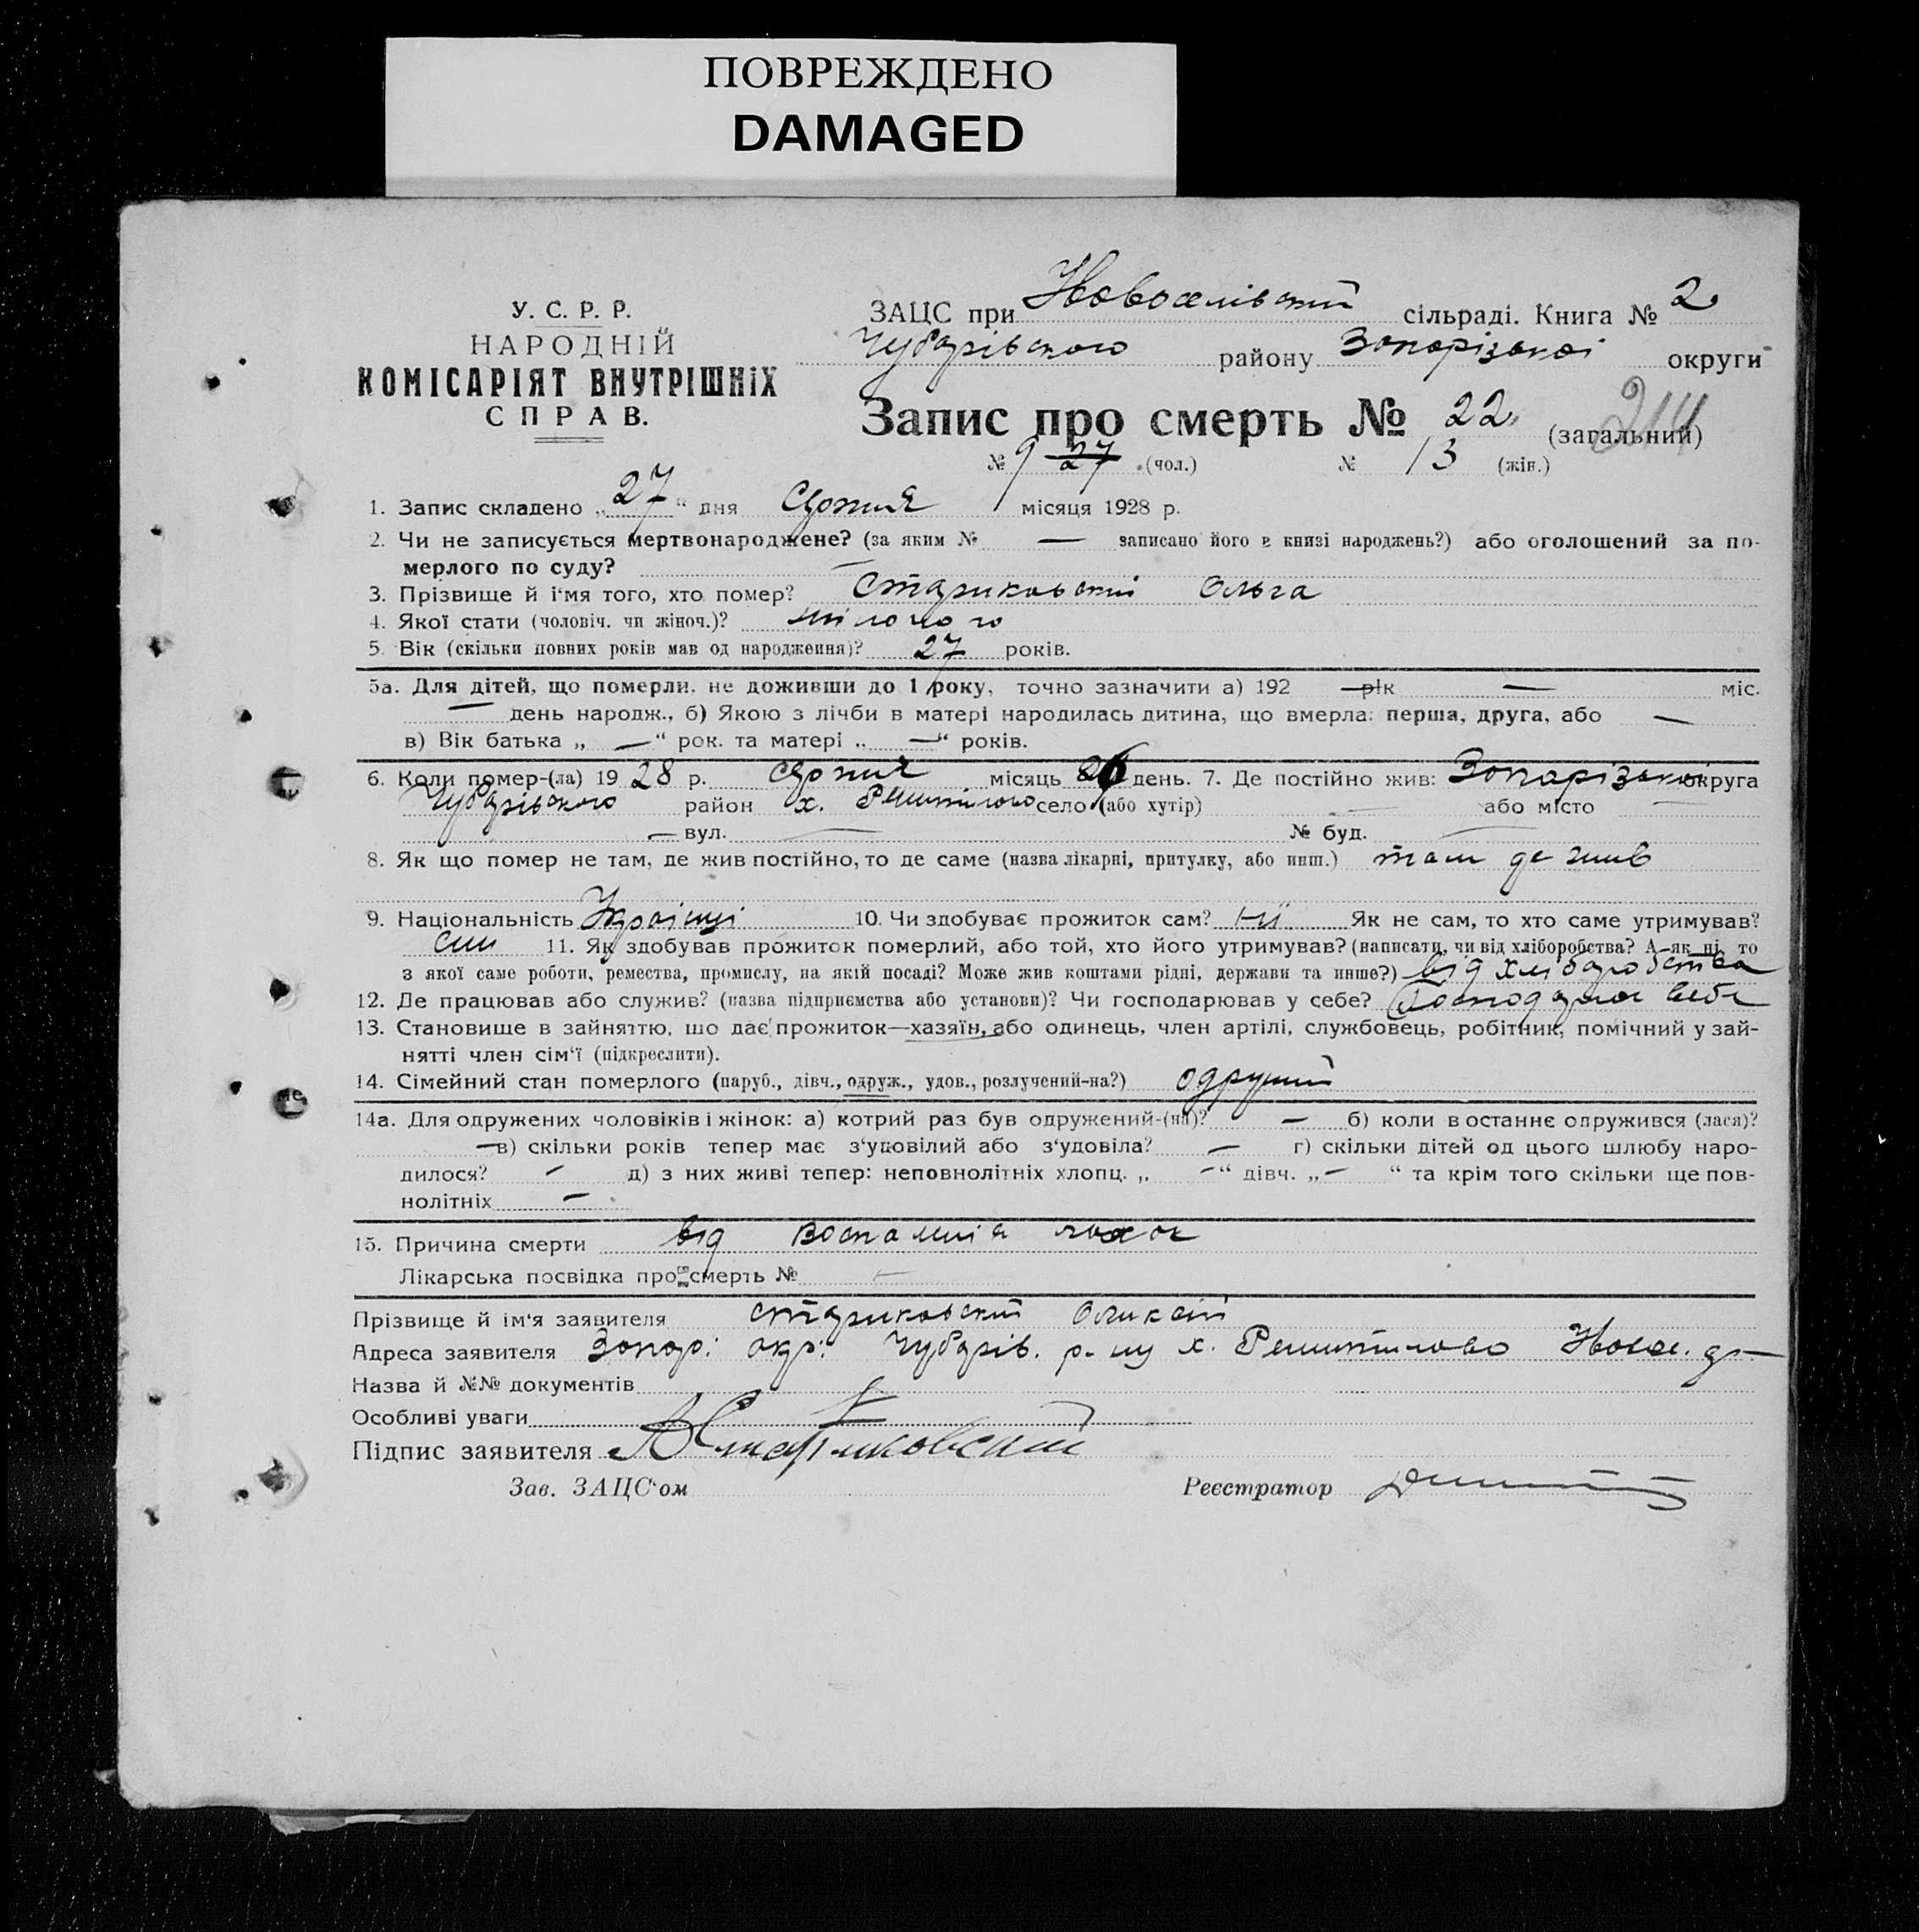 ПОВРЕЖДЕНО
DAMAGED
У. С. Р. Р.
НАРОДНІЙ
КОМІСАРІЯТ ВНУТРІШНІХ
СПРАВ.
ЗАЦС при Новоселівский сільраді. Книга № 2
Чубарівского району Запорізькоі округи
Запис про смерть № 22 (загальний) 214
№ 9 27 (чол.) № 13 (жін.)
1. Запис складено „27“ дня Серпня місяця 1928 р.
2. Чи не записується мертвонароджене? (за яким № — записано його в книзі народжень?) або оголошений за по-
мерлого по суду? —
3. Прізвище й і'мя того, хто помер? Стариковский Ольга
4. Якої стати (чоловіч. чи жіноч.)?
5. Вік (скільки повних років мав од народження)? 27 років.
5а. Для дітей, що померли, не доживши до 1 року, точно зазначити а) 192 рік — міс.
— день народж., б) Якою з лічби в матері народилась дитина, що вмерла: перша, друга, або —
в) Вік батька „ — “ рок. та матері „ — “ років.
6. Коли помер-(ла) 1928 р. Серпня місяць 26 день. 7. Де постійно жив: Запорізькоі округа
Чубарівского район х. село (або хутір) — або місто —
— вул. — № буд. —
8. Як що помер не там, де жив постійно, то де саме (назва лікарні, притулку, або инш.) там де жив
9. Національність Українці 10. Чи здобуває прожиток сам? Ні Як не сам, то хто саме утримував?
11. Як здобував прожиток померлий, або той, хто його утримував? (написати, чи від хліборобства? А як ні, то
з якої саме роботи, ремества, промислу, на якій посаді? Може жив коштами рідні, держави та инше?) від хліборобства
12. Де працював або служив? (назва підприємства або установи)? Чи господарював у себе?
13. Становище в зайняттю, що дає прожиток—хазяїн, або одинець, член артілі, службовець, робітник, помічний у зай-
нятті член сім'ї (підкреслити).
14. Сімейний стан померлого (паруб., дівч., одруж., удов., розлучений-на?) одружний
14а. Для одружених чоловіків і жінок: а) котрий раз був одружений-(на)? — б) коли в останнє одружився (лася)?
— в) скільки років тепер має з'удовілий або з'удовіла? — г) скільки дітей од цього шлюбу наро-
дилося? — д) з них живі тепер: неповнолітніх хлопц. „ — “ дівч. „ — “ та крім того скільки ще пов-
нолітніх —
15. Причина смерти від Воспаления
Лікарська посвідка про смерть № —
Прізвище й ім'я заявителя Стариковский Оликсій
Адреса заявителя Запор: окр: Чубарів. р-ну х.
Назва й №№ документів
Особливі уваги
Підпис заявителя А Стариковский
Зав. ЗАЦС'ом Реєстратор